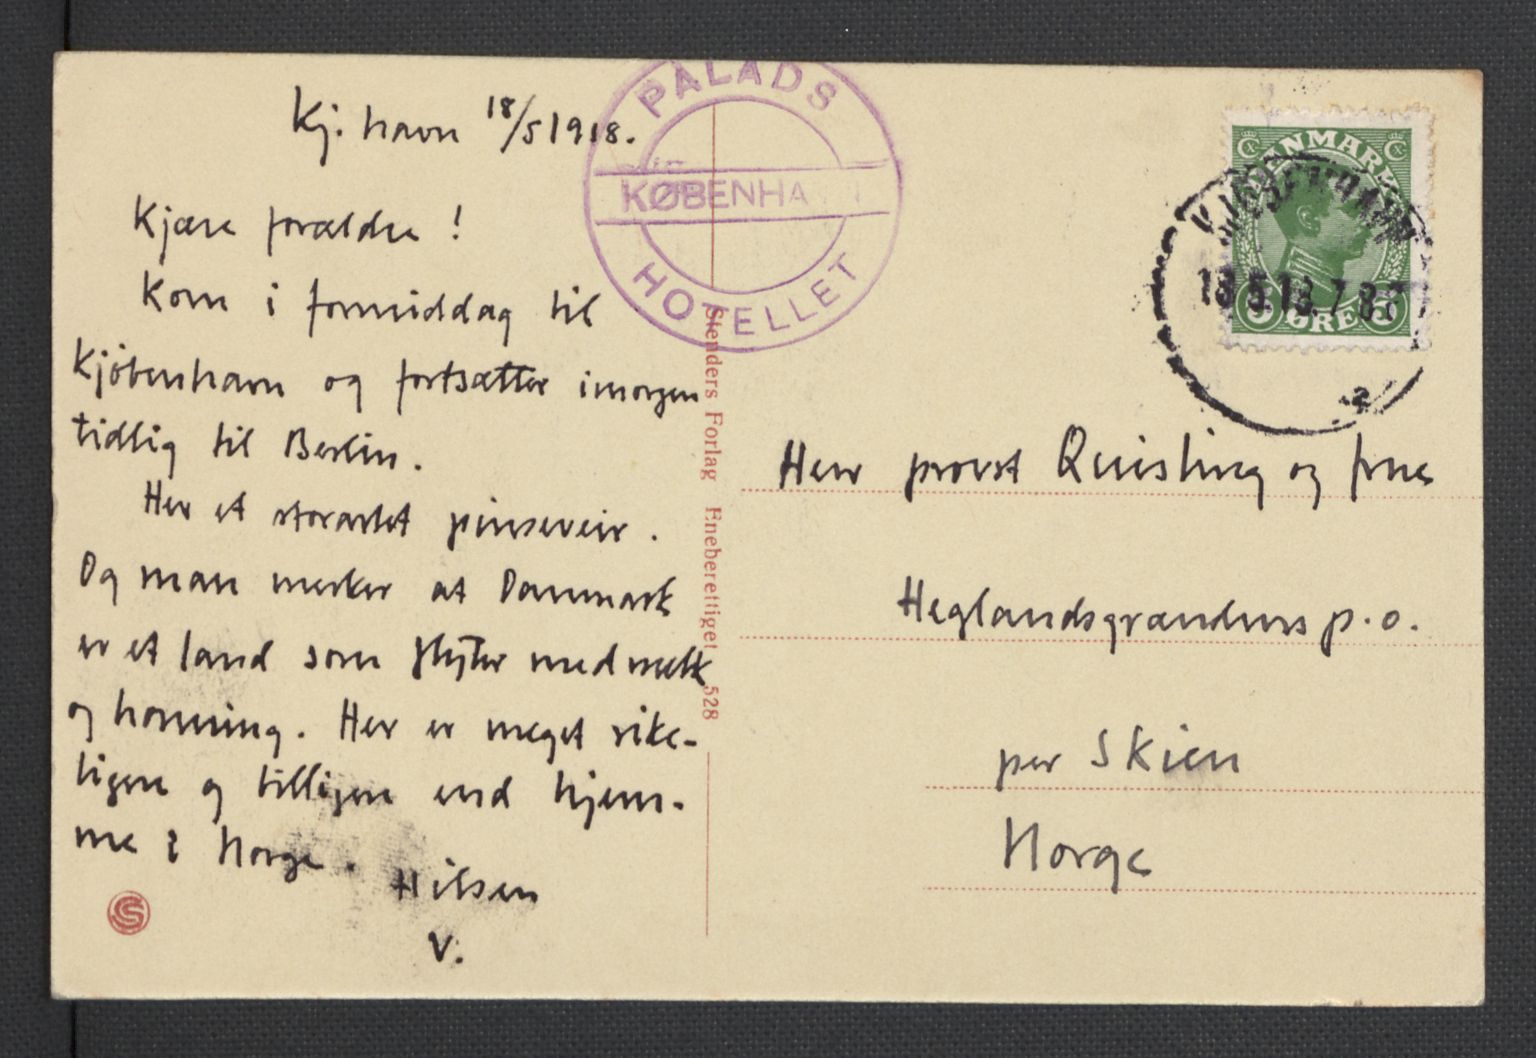 Kj.havn 18/5 1918.
Kjære forældre!
Kom i formiddag til
Kjöbenhavn og fortsætter imorgen
tidlig til Berlin.
Her et storartet pinseveir.
Og man merker at Danmark
er et land som flyter med melk
og honning. Her er meget rike-
ligere og billigere end hjem-
me i Norge.
Hilsen
V.
PALADS
KØBENHAVN
HOTELLET
Stenders Forlag Eneberettiget 528
DANMARK
5 ØRE 5
KJØBENHAVN
18.5.18.7-8 F
2
Herr provst Quisling og frue
Heglandsgrændens p.o.
per Skien
Norge
S